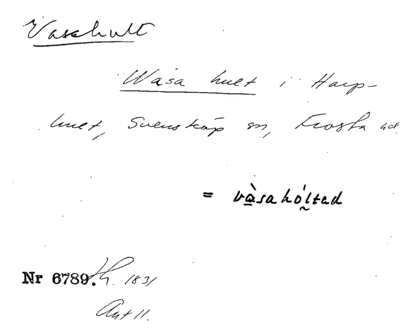 Vasahult
Wåsa hult i Harp-
hult, Svensköp sn, Frosta hd.
= vàsahóltad
Nr 6789. Lh. 1831
Akt 11.